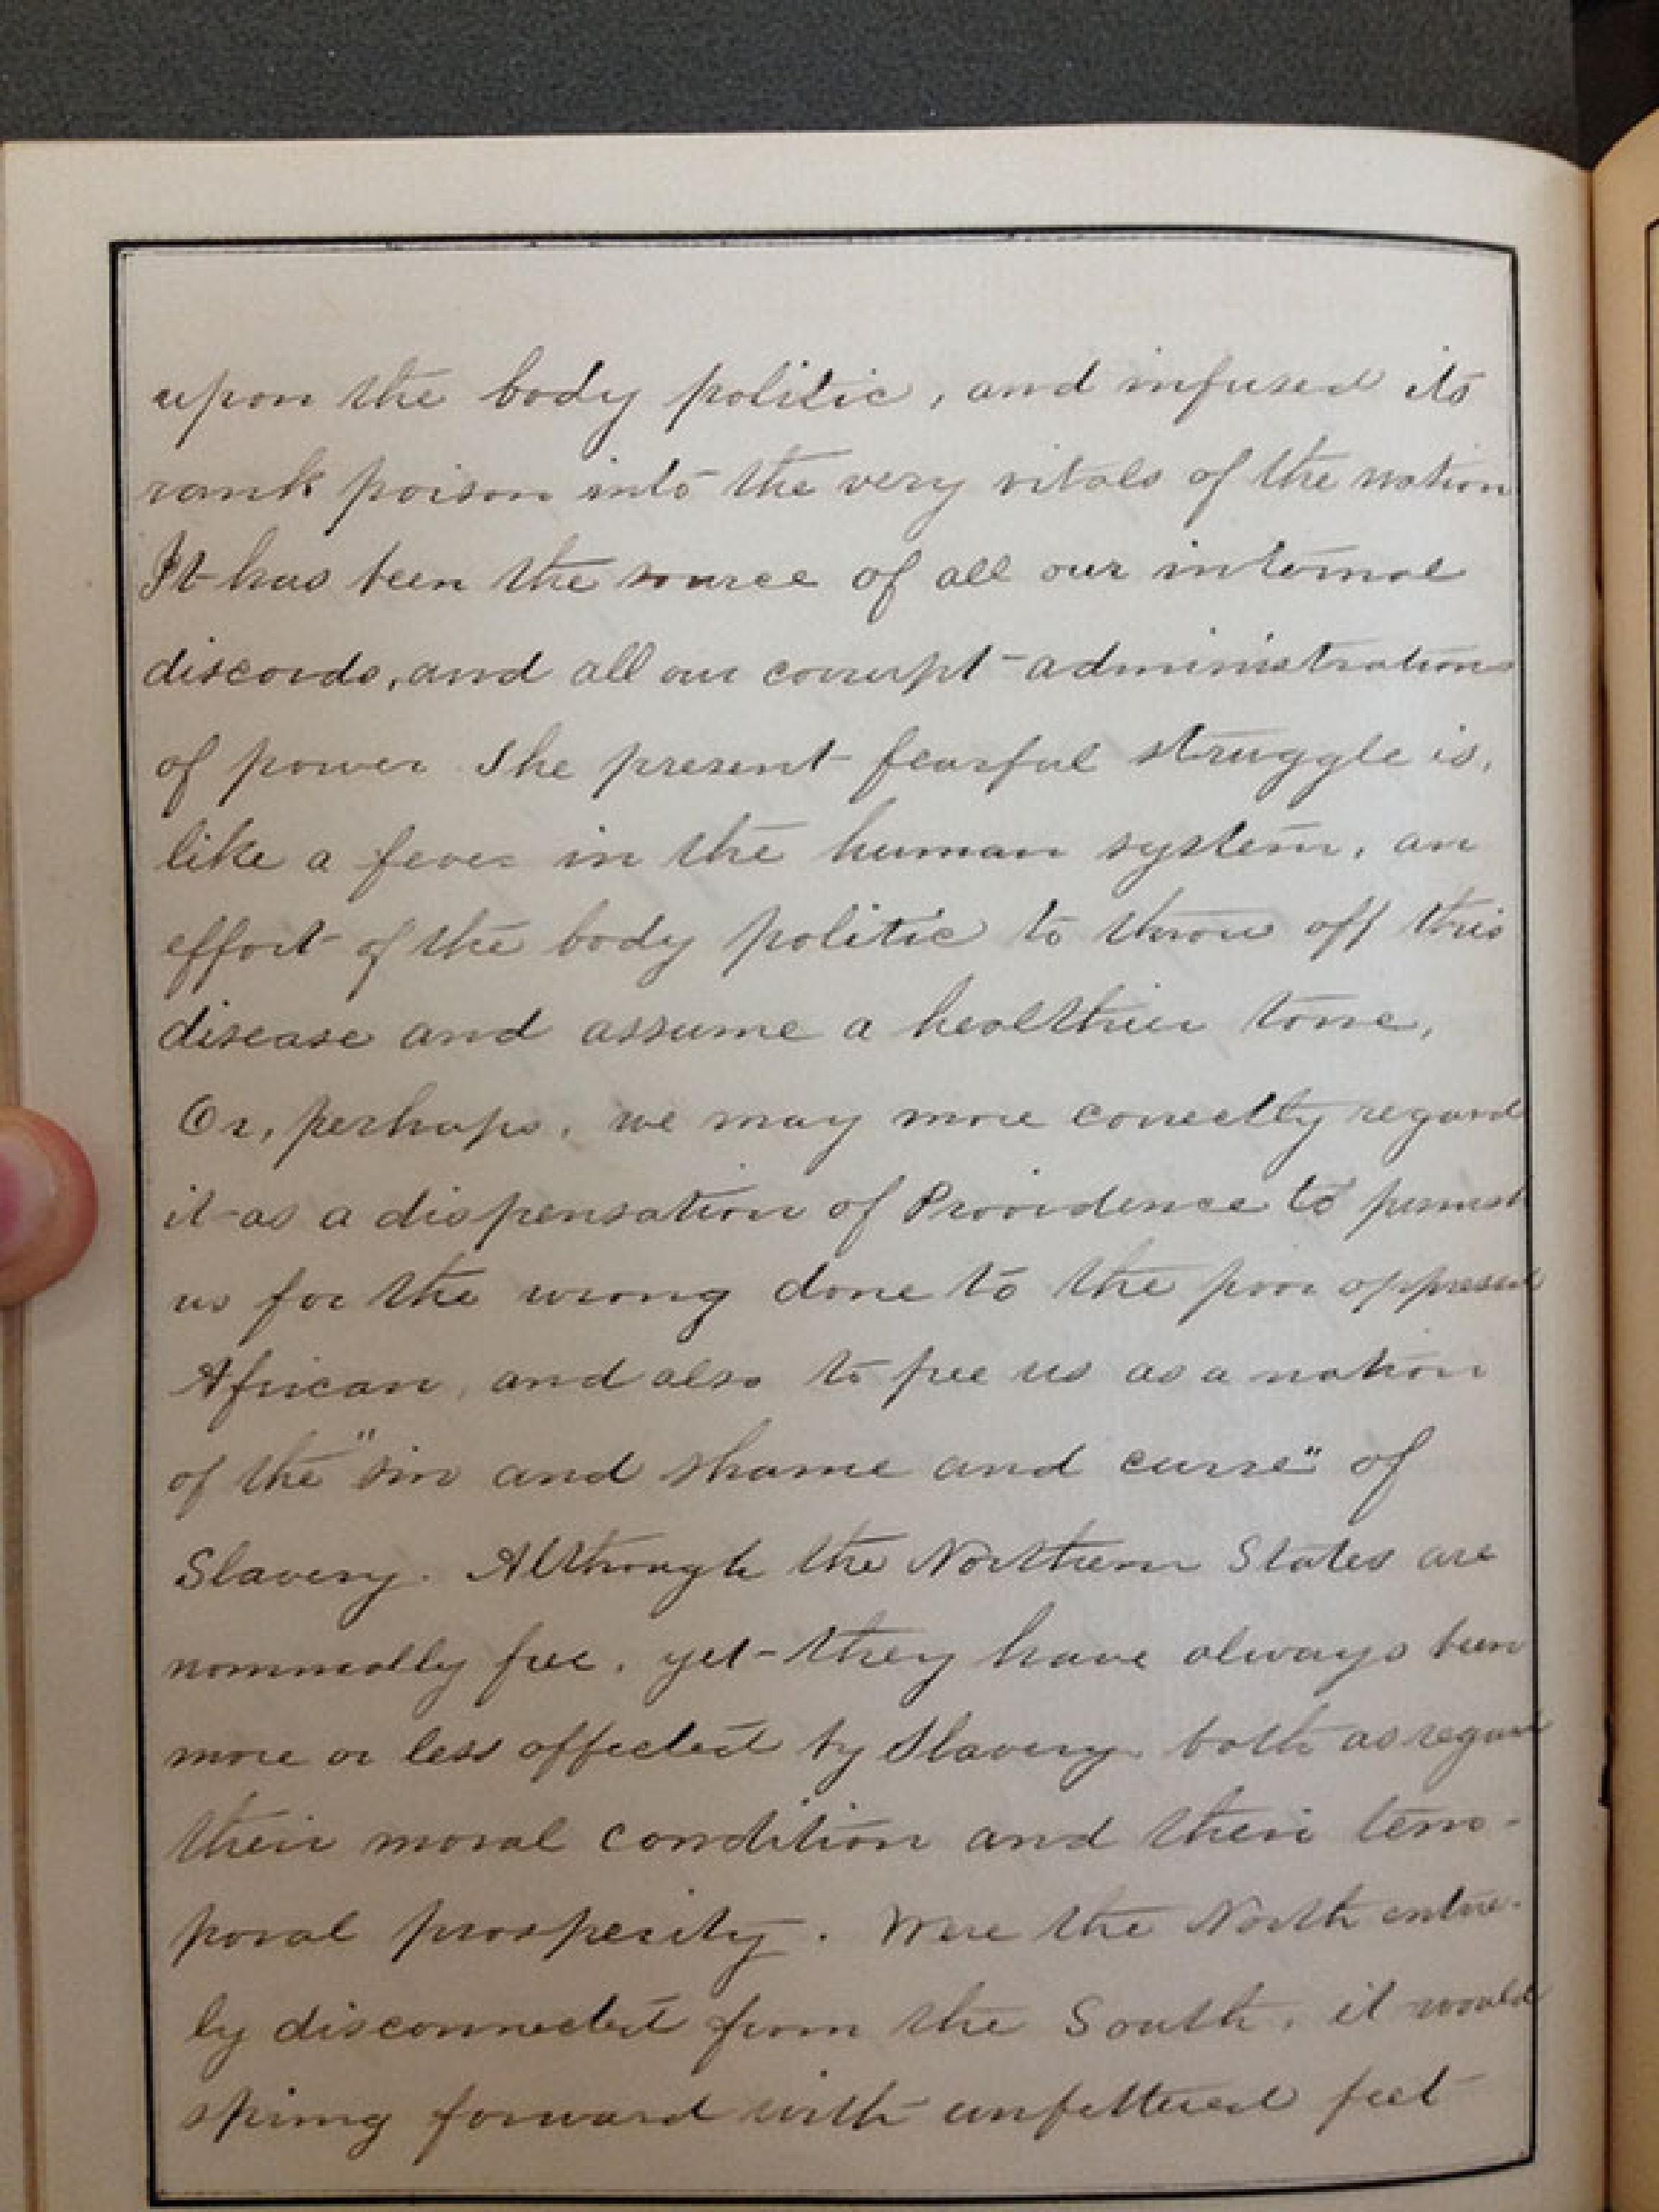 upon the body politic, and infused its
rank poison into the very vitals of the nation
It has been the source of all our internal
discords, and all our corrupt administrations
of power The present fearful struggle is,
like a fever in the human system, an
effort of the body politic to throw off this
disease and assume a healthier tone,
Or, perhaps, we may more correctly regard
it as a dispensation of Providence to punish
us for the wrong done to the poor oppressed
African, and also to free us as a nation
of the "sin and shame and curse" of
Slavery. Although the Northern States are
nominally free, yet they have always been
more or less affected by Slavery both as regard
their moral condition and their tem-
poral prosperity. Were the North entire-
ly disconnected from the South, it would
spring forward with unfettered feet